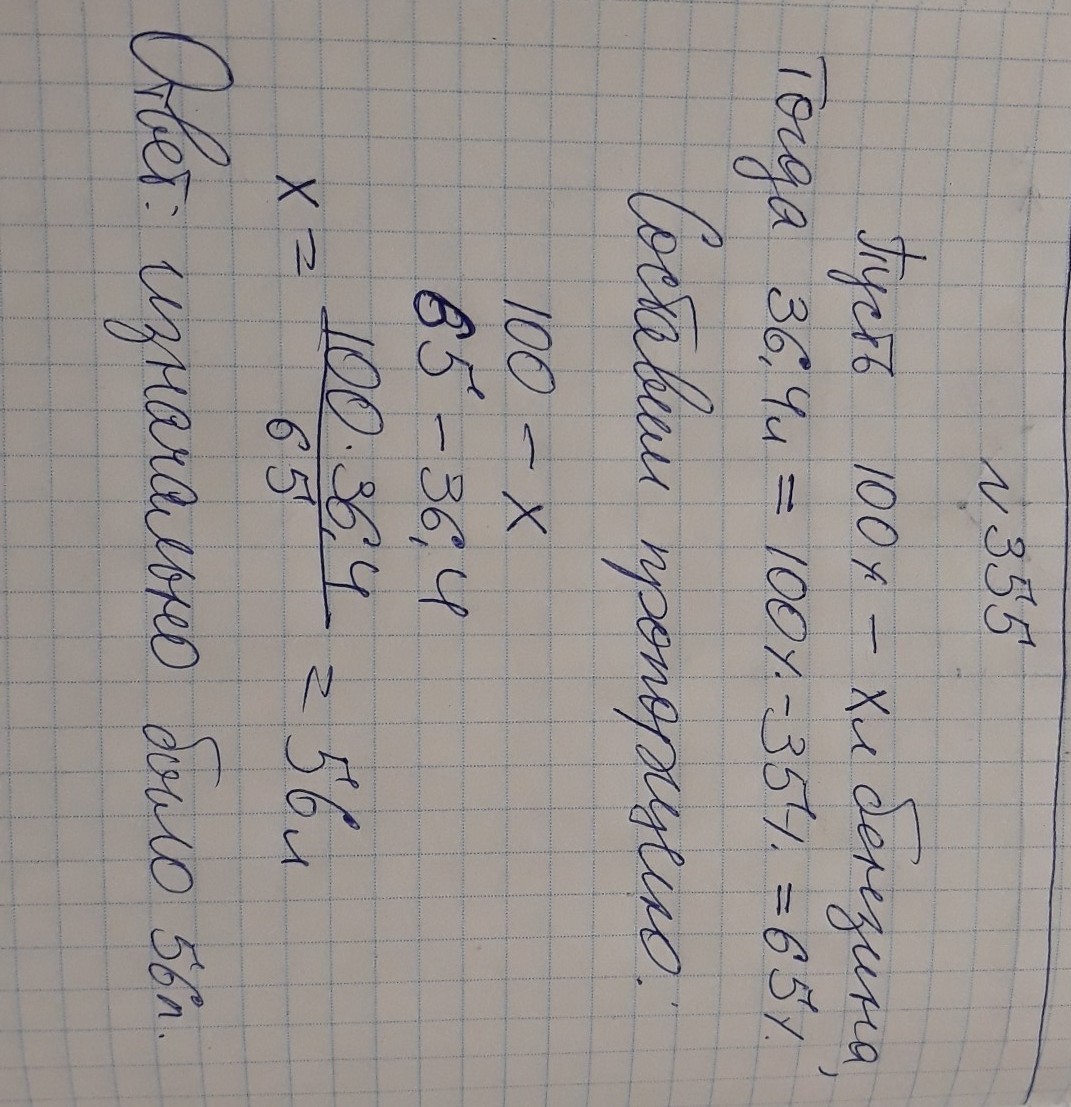 №355
Пусть 100% - xл бензина,
Тогда 36,4л = 100%-35% = 65%
Составим пропорцию:
100 - x
65 - 36,4
x = 100·36,4 / 65 = 56л
Ответ: изначально было 56л.